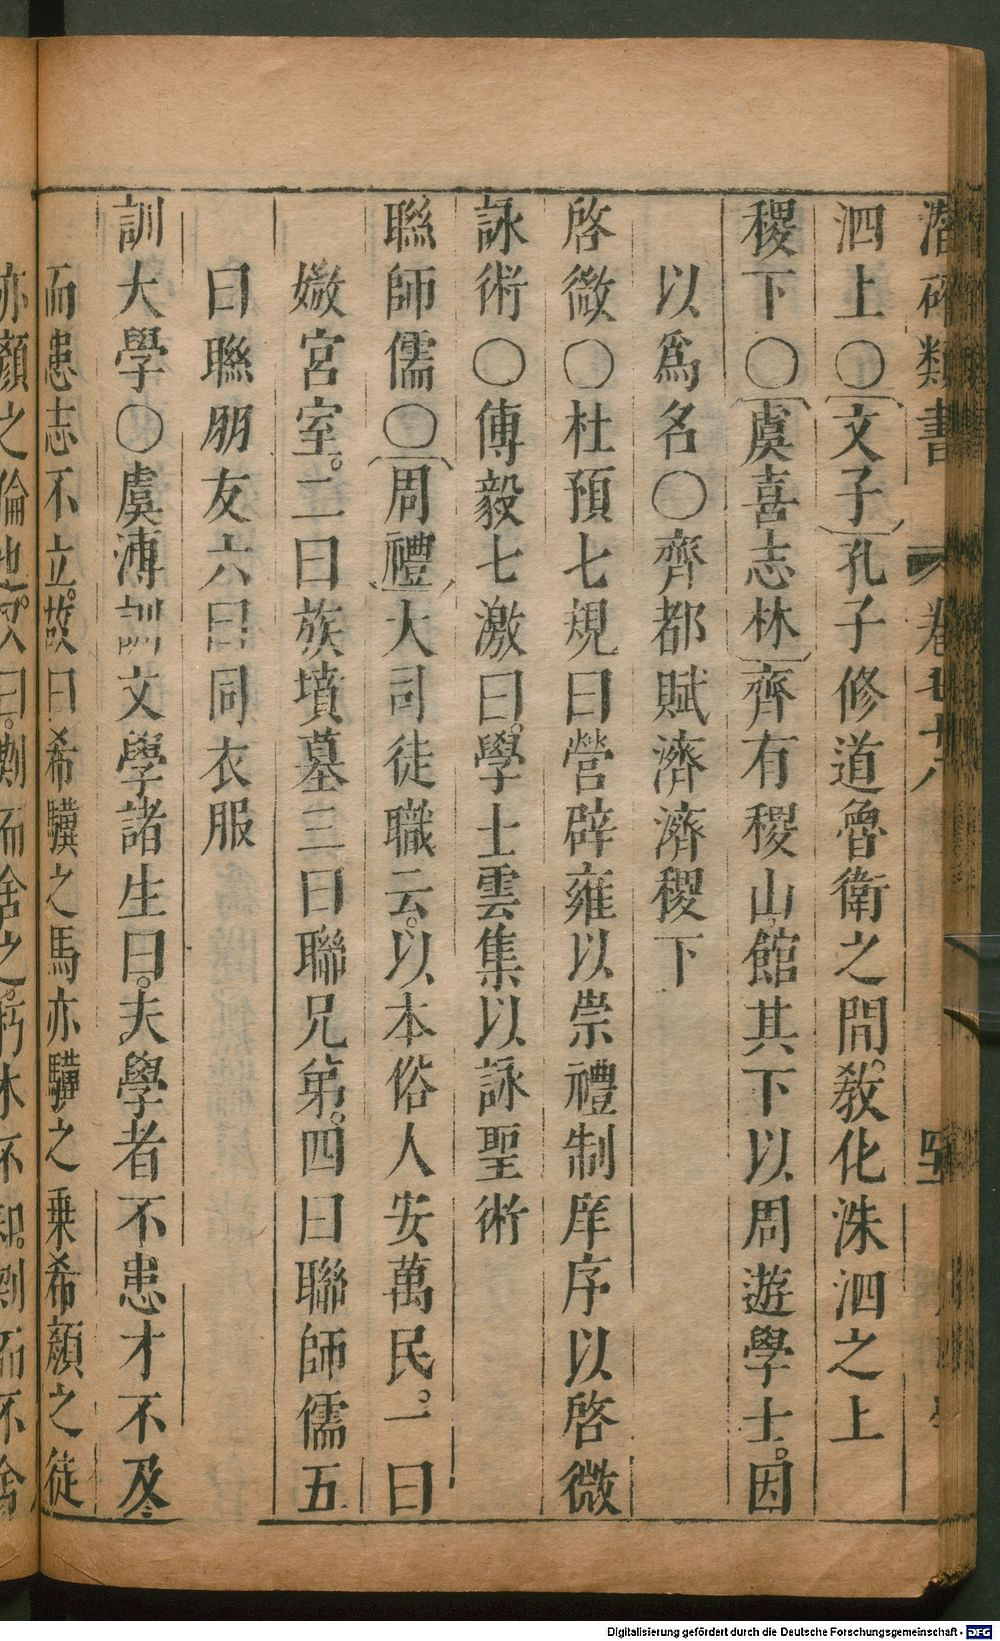 潛確類書 卷七十八 四十五
泗上○文子孔子修道魯衛之間。敎化洙泗之上
稷下○虞喜志林齊有稷山館其下以周遊學士。因
以爲名○齊都賦濟濟稷下
啓微○杜預七規曰營辟雍以崇禮制庠序以啓微
詠術○傅毅七激曰。學士雲集以詠聖術
聮師儒○周禮大司徒職云。以本俗人安萬民。一曰
媺宮室。二曰族墳墓三曰聮兄弟。四曰聮師儒五
曰聮朋友六曰同衣服
訓大學○虞溥訓文學諸生曰。夫學者不患才不及
而患志不立。故曰希驥之馬亦驥之乗希顏之徒
亦顏之倫也。又曰。剘而舍之。朽木不知。刻而不舍
Digitalisierung gefördert durch die Deutsche Forschungsgemeinschaft - DFG